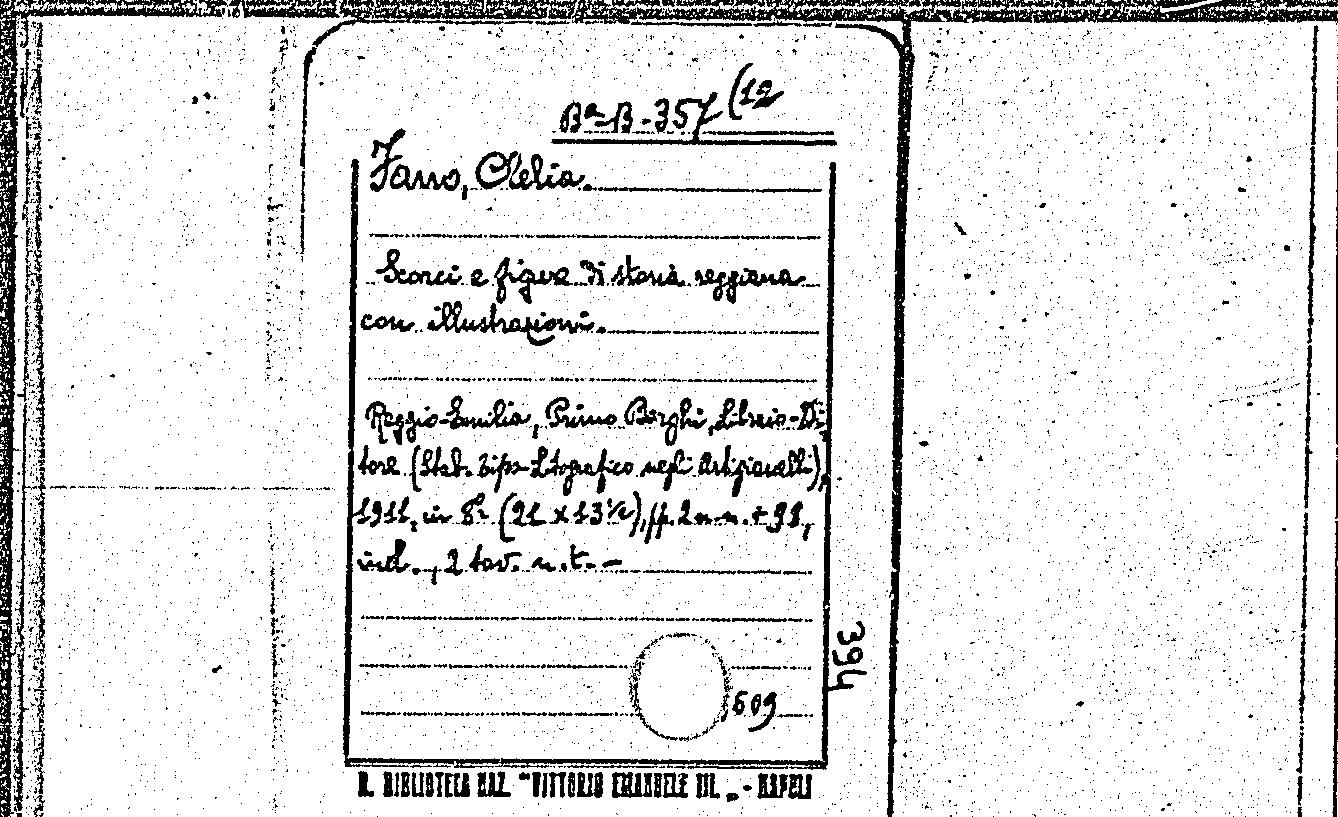 Bª-B-357(12
Fano, Clelia.
Scorci e figure di storia reggiana
con illustrazioni.
Reggio-Emilia, Primo Borghi, Libraio-Di
tore (Stab. Tipo-Litografico negli Artigianelli),
1911, in 8º (21 x 13½), pp. 2 n.n. + 98,
ind., 2 tav. n.t. -
394
609
R. BIBLIOTECA NAZ. "VITTORIO EMANUELE III. „ - NAPOLI